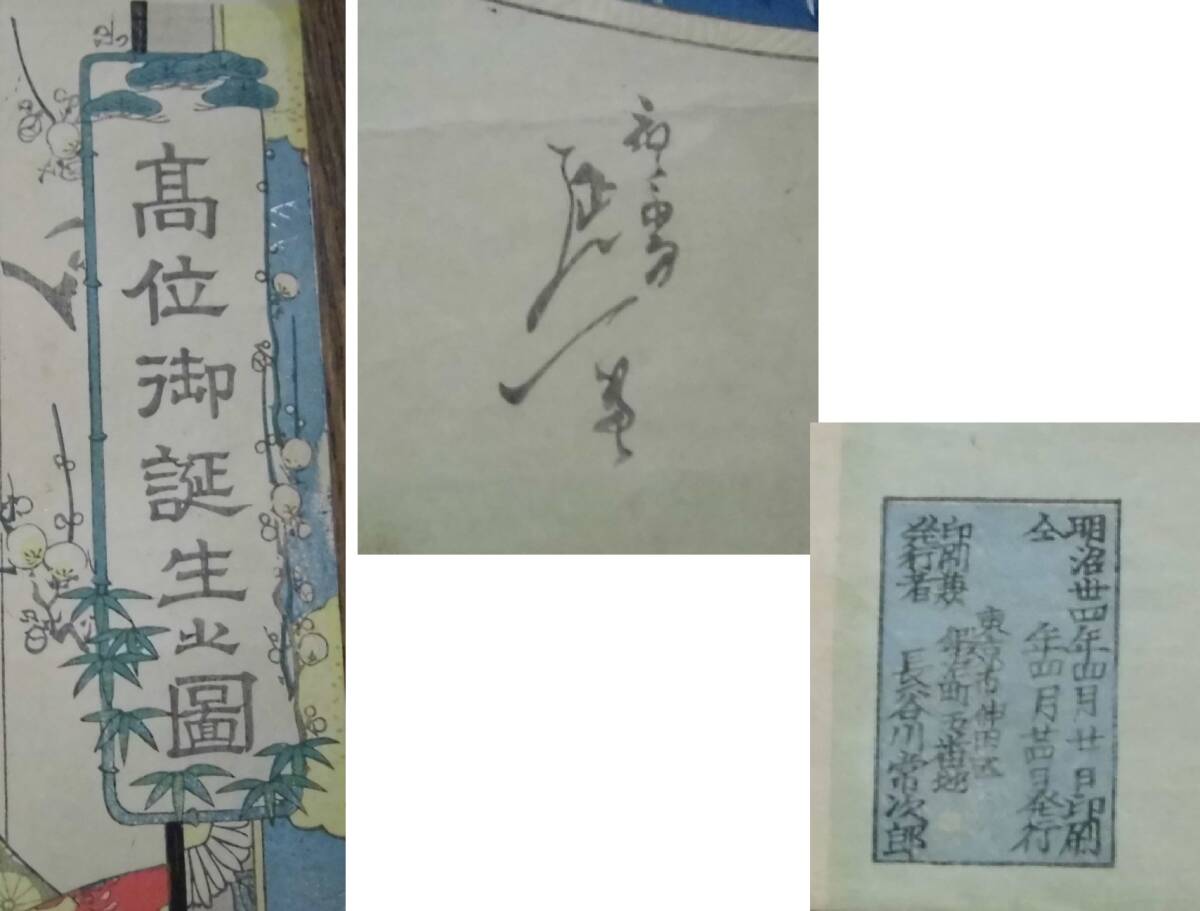 髙位御誕生之圖
延一筆
明治卅四年四月廿日印刷
仝 年四月廿四日発行
東京市神田区
五番地
印刷兼
発行者 長谷川常次郎